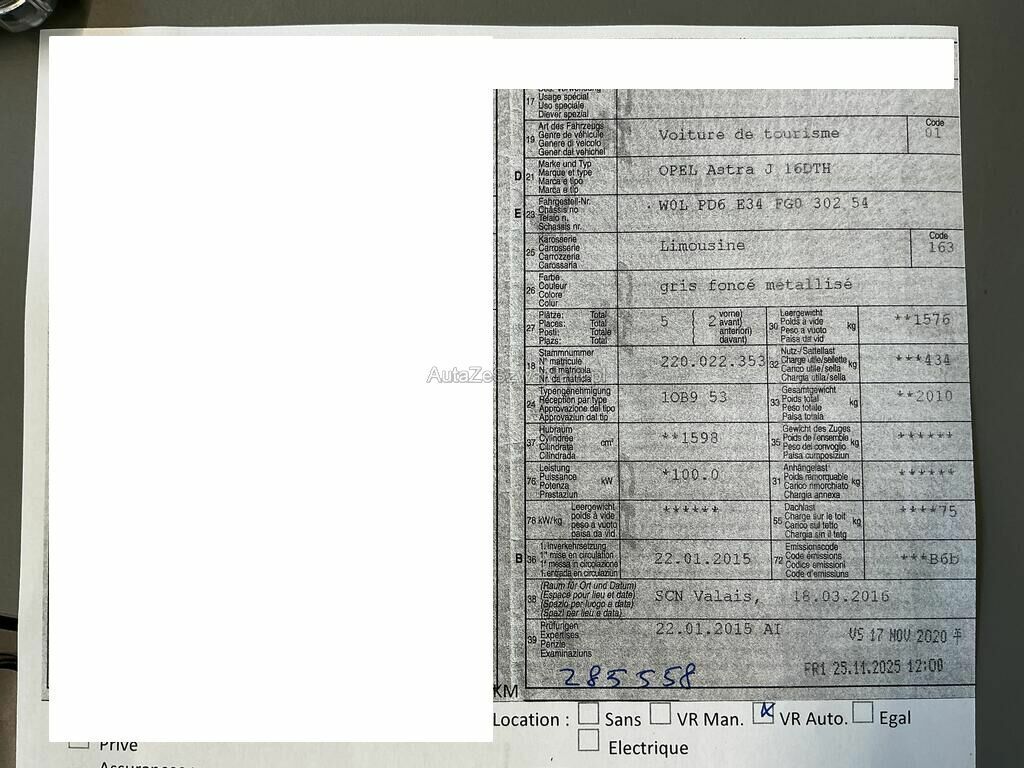 17 Usage spécial
Uso speciale
Diever spezial
19 Art des Fahrzeugs
Genre de véhicule
Genere di veicolo
Gener dal vehichel
Voiture de tourisme
Code
01
D 21 Marke und Typ
Marque et type
Marca e tipo
Marca e tip
OPEL Astra J 16DTH
E 23 Fahrgestell-Nr.
Châssis no
Telaio n.
Schassis nr.
W0L PD6 E34 FG0 302 54
25 Karosserie
Carrosserie
Carrozzeria
Carossaria
Limousine
Code
163
26 Farbe
Couleur
Colore
Colur
gris foncé métallisé
27 Plätze: Total
Places: Total
Posti: Totale
Plazs: Total
5 ( 2 vorne)
avant)
anteriori)
davant)
30 Leergewicht
Poids à vide
Peso a vuoto
Paisa da vid
kg
**1576
18 Stammnummer
N° matricule
N. di matricola
Nr. da matricla
220.022.353
32 Nutz-/Sattellast
Charge utile/sellette
Carico utile/sella
Chargia utila/sella
kg
***434
24 Typengenehmigung
Réception par type
Approvazione del tipo
Approvaziun dal tip
1OB9 53
33 Gesamtgewicht
Poids total
Peso totale
Paisa totala
kg
**2010
37 Hubraum
Cylindrée
Cilindrata
Cilindrada
cm³
**1598
35 Gewicht des Zuges
Poids de l'ensemble
Peso del convoglio
Paisa cumposiziun
kg
******
76 Leistung
Puissance
Potenza
Prestaziun
kW
*100.0
31 Anhängelast
Poids remorquable
Carico rimorchiato
Chargia annexa
kg
******
78 kW/kg Leergewicht
poids à vide
peso a vuoto
paisa da vid
******
55 Dachlast
Charge sur le toit
Carico sul tetto
Chargia sin il tetg
kg
****75
B 36 1. Inverkehrsetzung
1re mise en circulation
1a messa in circolazione
1. entrada en circulaziun
22.01.2015
72 Emissionscode
Code émissions
Codice emissioni
Code d'emissiuns
***B6b
38 (Raum für Ort und Datum)
(Espace pour lieu et date)
(Spazio per luogo e data)
(Spazi per lieu e data)
SCN Valais, 18.03.2016
39 Prüfungen
Expertises
Perizie
Examinaziuns
22.01.2015 AI
VS 17 NOV 2020
FR1 25.11.2025 12:00
285558
KM
Location : Sans VR Man. VR Auto. Egal
Electrique
Privé